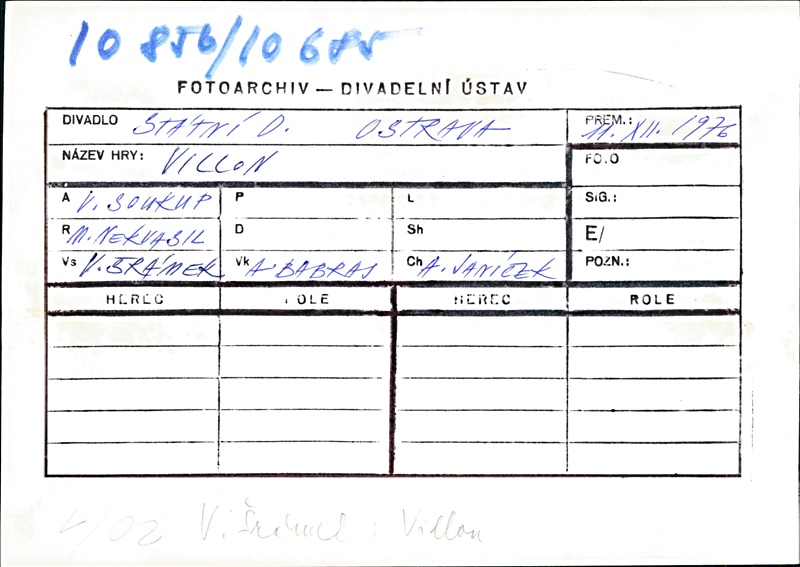 10 856/10 685
FOTOARCHIV — DIVADELNÍ ÚSTAV
DIVADLO STÁTNÍ D. OSTRAVA PREM.: 11. XII. 1976
NÁZEV HRY: VILLON FOTO
A V. SOUKUP P L SIG.:
R M. NERVASIL D Sh E/
Vs V. ŠRÁMEK Vk A. BABRAJ Ch A. JANÍČEK POZN.:
HEREC ROLE HEREC ROLE
V. Šrámek : Villon